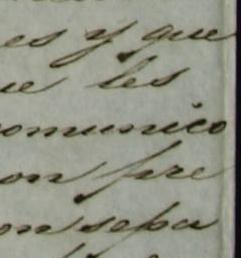 es y que
ue les
comunico
on pre
onsepa